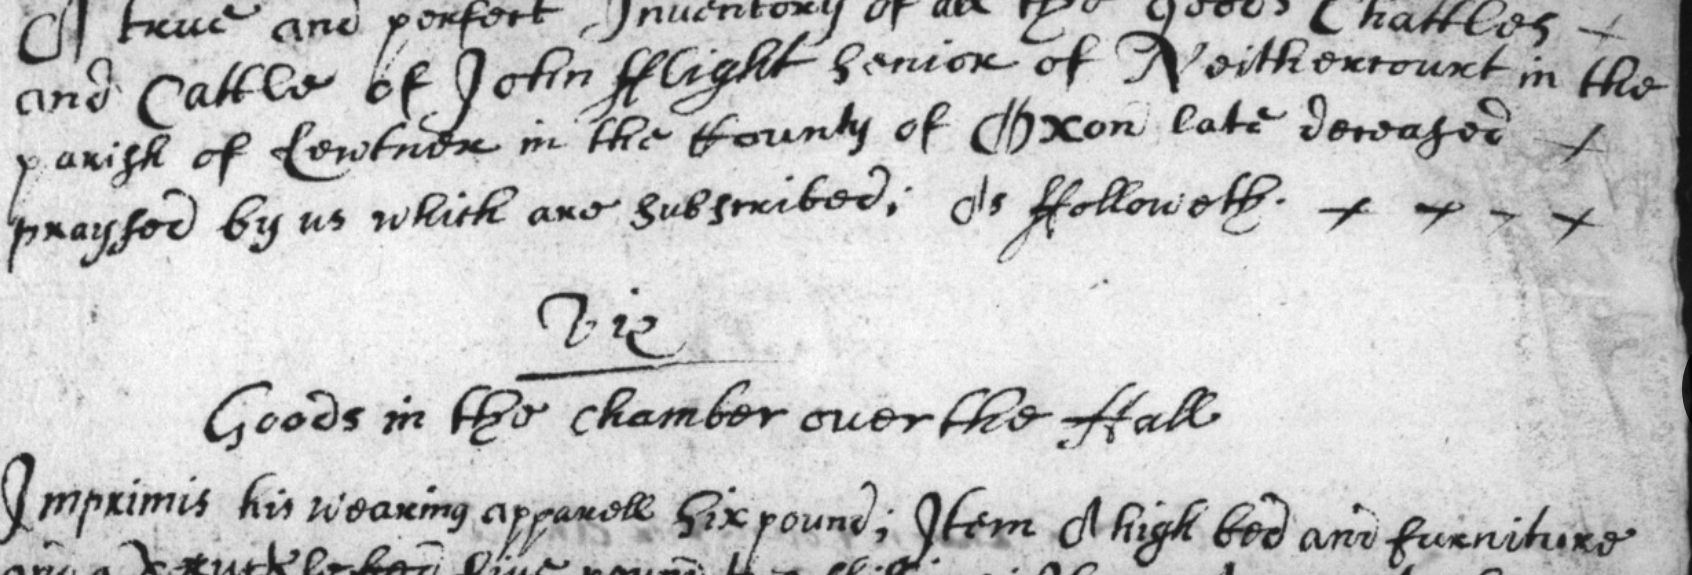 A true and perfect Inventory of all the goods Chattles
and Cattle of John fflight senior of Neithercourt in the
parish of Lewkner in the County of Oxon late deceased
praysed by us which are subscribed; As ffolloweth.
Viz
Goods in the chamber over the Hall
Imprimis his wearing apparell six pound; Item A high bed and furniture
and a truckle bed five pound